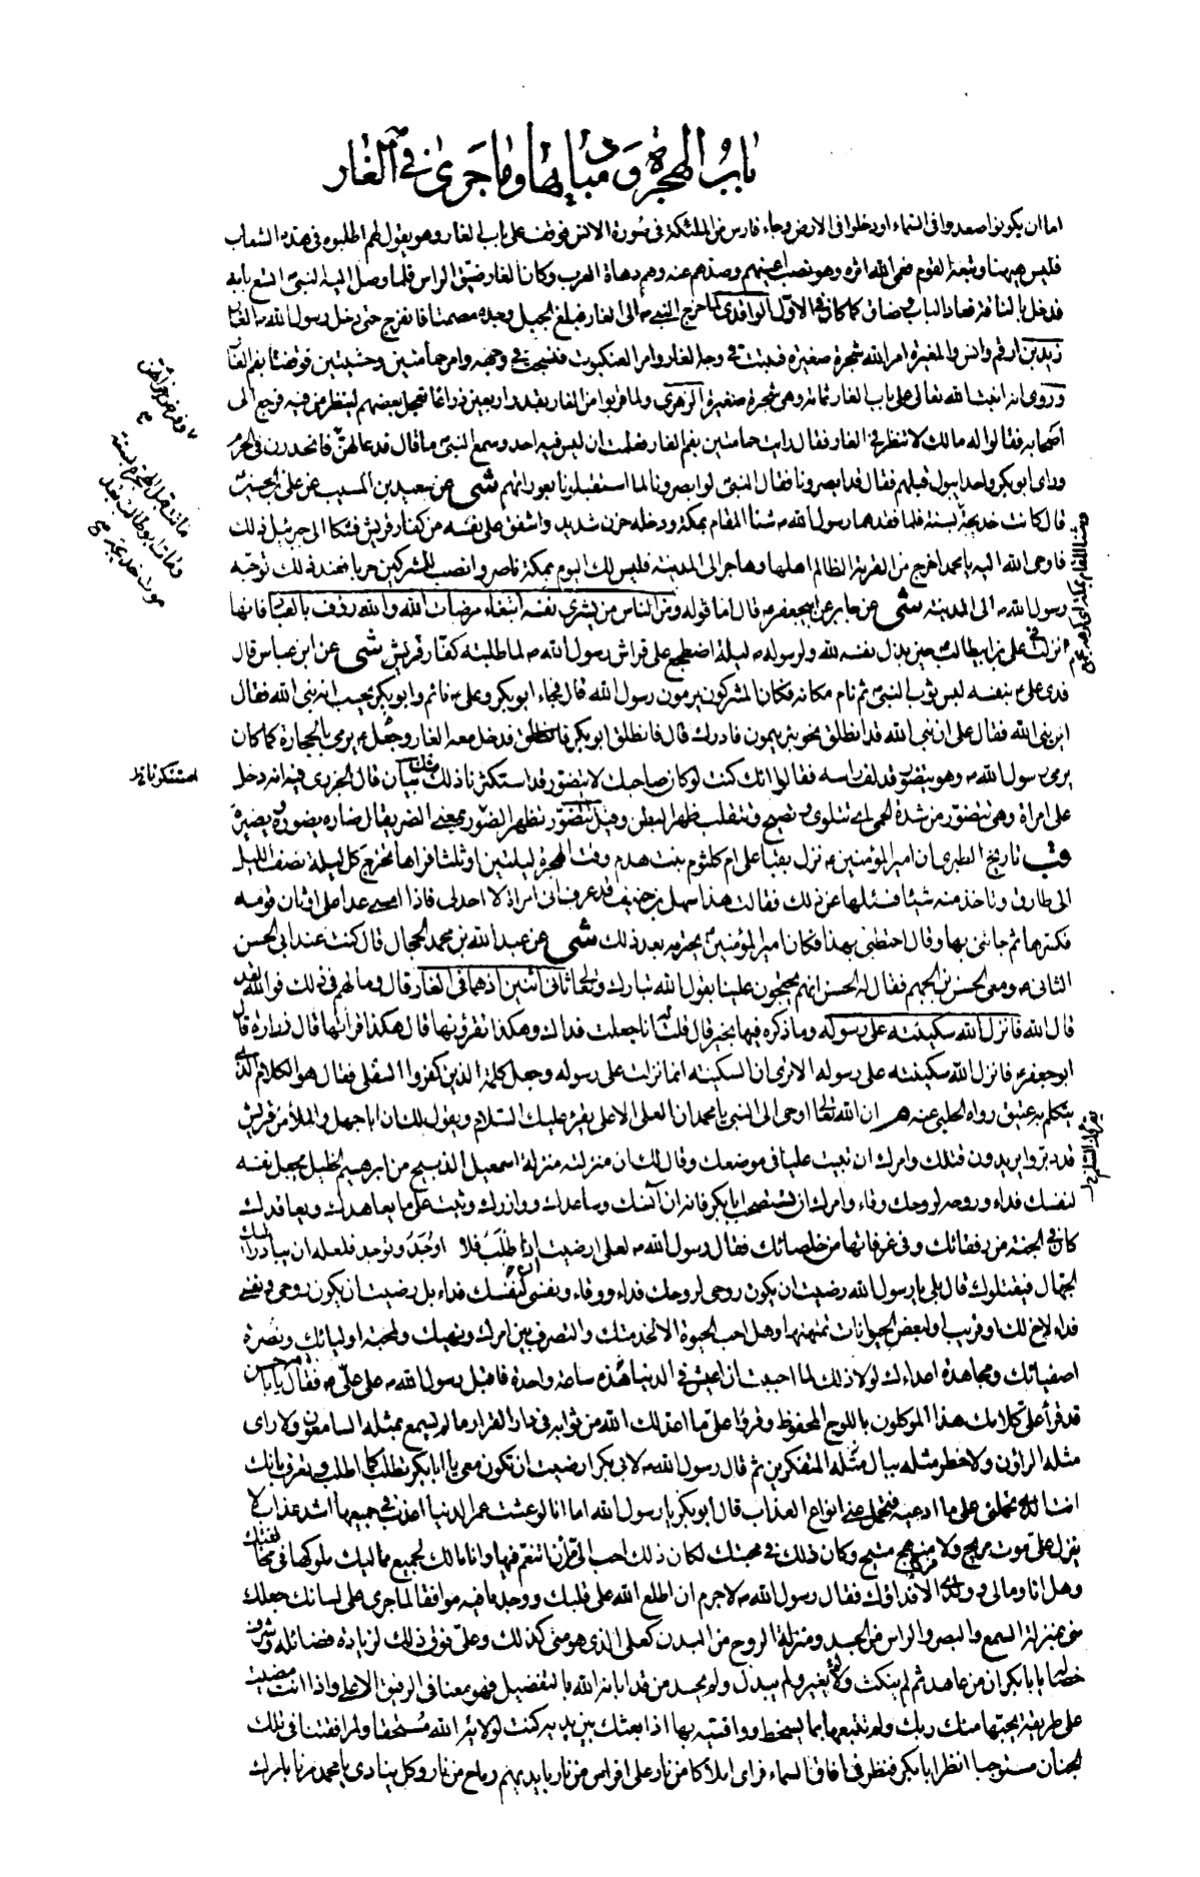 باب الهجرة ومباديها وما جرى في الغار
اما ان يكونوا صعدوا في السماء او دخلوا في الارض وجاء فارس من الملئكة في صورة الانس فوقف على باب الغار وهو يقول لهم اطلبوه في هذه الشعاب
فليس هيهنا وتبعه القوم فعمى الله اثره وهو نصب اعينهم وصدهم عنه وهم دهاة العرب وكان الغار ضيق الراس فلما وصل اليه النبي اتسع بابه
فدخل بالناقة فعاد الباب وضاق كما كان في الاول الواقدي لما خرج النبي ص الى الغار فبلغ الجبل وجده مصمتا فانفرج حتى دخل رسول الله ص الغار
زيد بن ارقم وانس والمغيرة امر الله شجرة صغيرة فنبتت في وجه الغار وامر العنكبوت فنسجت في وجهه وامر حمامتين وحشيتين فوقفتا بفم الغار
وروى انه انبت الله تعالى على باب الغار ثمامة وهي شجرة صغيرة الزهري ولما قربوا من الغار بقدر اربعين ذراعا تعجل بعضهم لينظر من فيه فرجع الى
اصحابه فقالوا له مالك لا تنظر في الغار فقال رايت حمامتين بفم الغار فعلمت ان ليس فيه احد وسمع النبي ما قال فدعا لهن فانحدرن في الحرم
وراى ابو بكر واحدا يبول قبلهم فقال قد ابصرونا فقال النبي لو ابصرونا لما استقبلونا بعوراتهم شى عن سعيد بن المسيب عن علي بن الحسين
قال كانت خديجة بسنة فلما فقدهما رسول الله ص شنا المقام بمكة ودخله حزن شديد واشفق على نفسه من كفار قريش فشكا الى جبرئيل ذلك
فاوحى الله اليه يا محمد اخرج من القرية الظالم اهلها وهاجر الى المدينة فليس لك اليوم بمكة ناصر وانصب للمشركين حربا فعند ذلك توجه
رسول الله ص الى المدينة شى عن جابر عن ابي جعفر ع قال اما قوله ومن الناس من يشرى نفسه ابتغاء مرضات الله والله رؤف بالعباد فانها
انزلت في علي بن ابيطالب حين بذل نفسه لله ولرسوله ص ليلة اضطجع على فراش رسول الله ص لما طلبته كفار قريش شى عن ابن عباس قال
فدى علي ع بنفسه لبس ثوب النبي ثم نام مكانه فكان المشركون يرمون رسول الله قال فجاء ابو بكر وعلي ع نائم وابو بكر يحسب انه نبي الله فقال
اين نبي الله فقال علي ان نبي الله قد انطلق نحو بئر ميمون فادرك قال فانطلق ابو بكر فدخل معه الغار وجعل ع يرمى بالحجارة كما كان
يرمى رسول الله ص وهو يتضور قد لف راسه فقالوا انك كنت لو كان صاحبك لا يتضور قد استكثرنا ذلك منك بيان قال الجزري فيه انه دخل
على امراة وهي تتضور من شدة الحمى اي تتلوى وتصيح وتتقلب ظهر البطن وقيل تتضور تظهر الضور بمعنى الضر يقال ضاره يضوره ويضيره
قب تاريخ الطبري ان امير المؤمنين ع نزل بقبا على ام كلثوم بنت هدم وقت الهجرة ليلتين او ثلثا فراها تخرج كل ليلة نصف الليل
الى طارق وتاخذ منه شيئا فسئلها عن ذلك فقالت هذا سهل بن حنيف قد عرف اني امراة لا احد لي فاذا امسى عدا على اوثان قومه
فكسرها ثم جائني بها وقال احتطبي بهذا فكان امير المؤمنين يحترمه بعد ذلك شى عن عبد الله بن محمد الحجال قال كنت عند ابي الحسن
الثاني ع ومعي الحسن بن الجهم فقال له الحسن انهم يحتجون علينا بقول الله تبارك وتعالى ثاني اثنين اذ هما في الغار قال وما لهم في ذلك فوالله لقد
قال الله فانزل الله سكينته على رسوله وما ذكره فيها بخير قال قلت له انا جعلت فداك وهكذا تقرؤنها قال هكذا قراتها قال زرارة قال
ابو جعفر ع فانزل الله سكينته على رسوله الا ترى ان السكينة انما نزلت على رسوله وجعل كلمة الذين كفروا السفلى فقال هو الكلام الذي
يتكلم به عتيق رواه الحلبي عنه م ان الله تعالى اوحى الى النبي يا محمد ان العلي الاعلى يقرء عليك السلام ويقول لك ان ابا جهل والملأ من قريش
قد دبروا يريدون قتلك وامرك ان تبيت عليا في موضعك وقال لك ان منزلته منزلة اسمعيل الذبيح من ابرهيم الخليل يجعل نفسه
لنفسك فداء وروحه لروحك وقاء وامرك ان تستصحب ابا بكر فانه ان آنسك وساعدك ووازرك وثبت على ما يعاهدك ويعاقدك
كان في الجنة من رفقائك وفي غرفاتها من خلصائك فقال رسول الله ص لعلي ارضيت ان اطلب فلا اوجد وتوجد فلعله ان يبادر اليك
الجهال فيقتلوك قال بلى يا رسول الله رضيت ان يكون روحي لروحك فداء ووقاء ونفسي لنفسك فداء بل رضيت ان يكون روحي ونفسي
فداء لاخ لك او قريب او لبعض الحيوانات تمتهنها وهل احب الحيوة الا لخدمتك والتصرف بين امرك ونهيك ولمحبة اوليائك ونصرة
اصفيائك ومجاهدة اعدائك لولا ذلك لما احببت ان اعيش في الدنيا هذه ساعة واحدة فاقبل رسول الله ص على علي ع فقال يا ابا حسن
قد قرأ علي كلامك هذا الموكلون باللوح المحفوظ وقرؤا علي ما اعد الله لك من ثوابه في دار القرار ما لم يسمع بمثله السامعون ولا راى
مثله الراؤن ولا خطر مثله ببال المتفكرين ثم قال رسول الله ص لابي بكر ارضيت ان تكون معي يا ابا بكر تطلب كما اطلب وتعرف بانك
انت الذي تحملني على ما ادعيه فتحمل عني انواع العذاب قال ابو بكر يا رسول الله اما انا لو عشت عمر الدنيا اعذب في جميعها اشد عذاب لا
ينزل على موت مريح ولا فرج متيح وكان ذلك في محبتك لكان ذلك احب الي من ان اتنعم فيها وانا مالك لجميع مماليك ملوكها في مخالفتك
وهل انا ومالي وولدي الا فداؤك فقال رسول الله ص لا جرم ان اطلع الله على قلبك ووجد ما فيه موافقا لما جرى على لسانك جعلك
مني بمنزلة السمع والبصر والراس من الجسد وبمنزلة الروح من البدن كعلي الذي هو مني كذلك وعلي فوق ذلك لزيادة فضائله وشرف
خصاله يا ابا بكر ان من عاهد ثم لم ينكث ولم يغير ولم يبدل ولم يحسد من قد ابانه الله بالتفضيل فهو معنا في الرفيق الاعلى واذا انت مضيت
على طريقة يحبها منك ربك ولم تتبعها بما يسخط ووافيته بها اذا بعثك بين يديه كنت لولاية الله مستحقا ولمرافقتنا في تلك
الجنان مستوجبا انظر ابا بكر فنظر في افاق السماء فراى املاكا من نار على افراس من نار بايديهم رماح من نار وكل ينادي يا محمد مرنا بامرك
ماتت قبل الهجرة بسنة
ومات ابو طالب بعد
موت خديجة
استنكرناه